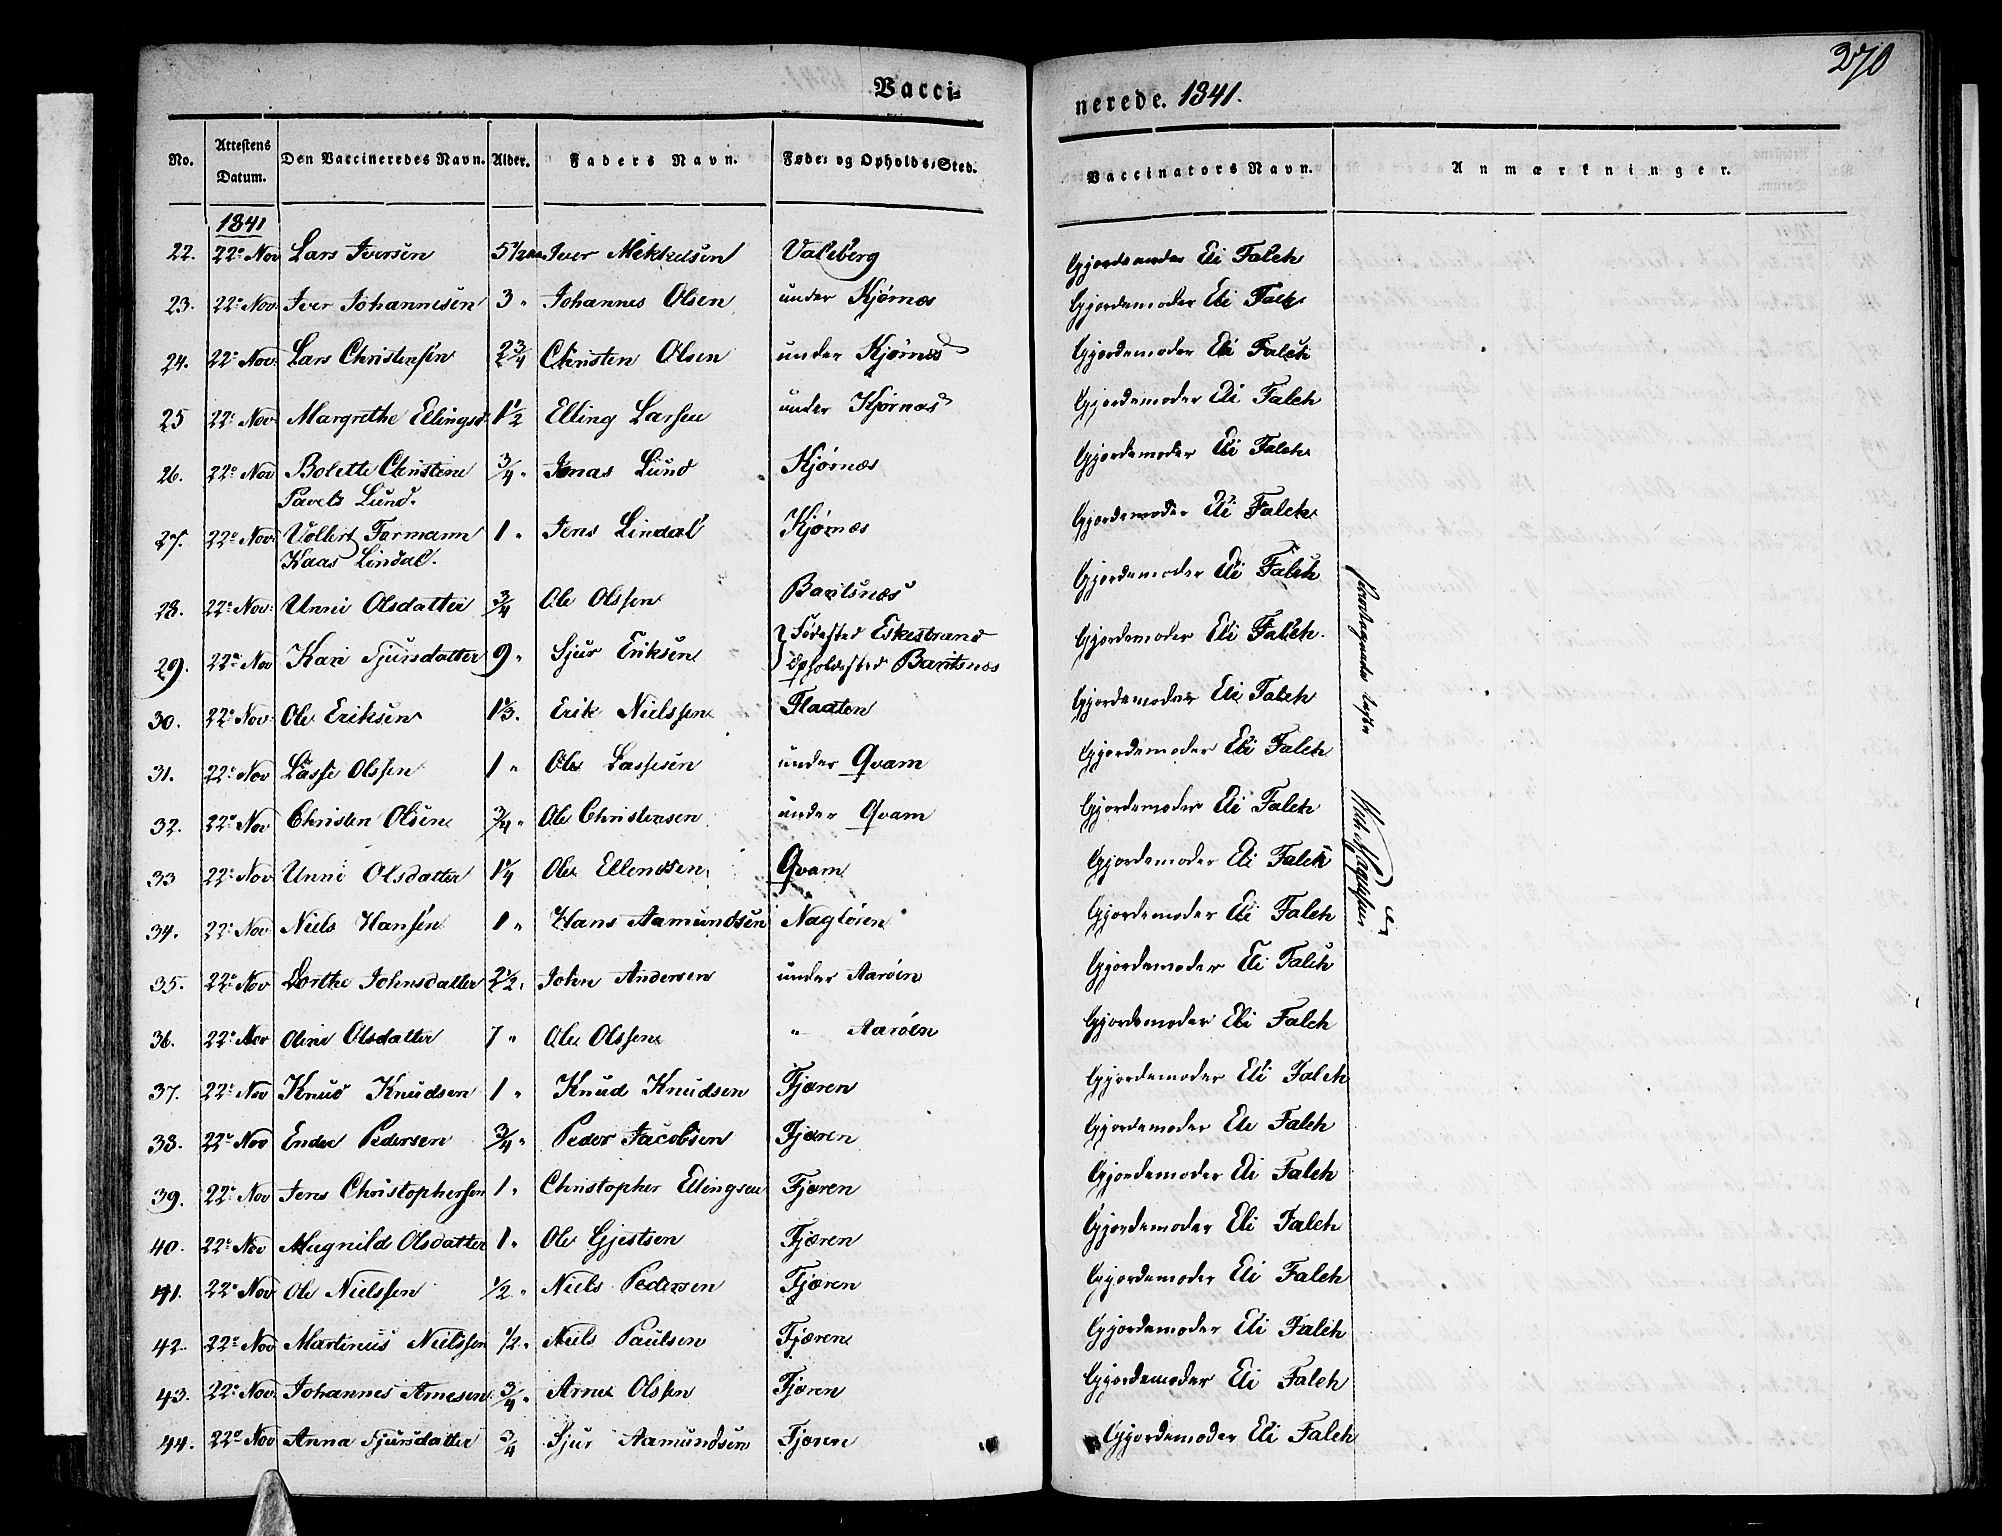 270
Vacci-
nerede. 1841.
No. Attestens Datum. Den Vaccineredes Navn. Alder. Faders Navn. Føde- og Opholds-Sted. Vaccinators Navn. Anmærkninger.
1841
22. 22de Nov Lars Iversen 5 1/2 Iver Mikkelsen Valeberg Gjordemoder Eli Falch
23. 22de Nov. Iver Johannesen 3 " Johannes Olsen under Kjørnæs Gjordemoder Eli Falch
24. 22de Nov. Lars Christensen 2 3/4 Christen Olsen under Kjørnæs Gjordemoder Eli Falch
25 22de Nov. Margrethe Ellingsd. 1 1/2 Elling Larsen under Kjørnæs Gjordemoder Eli Falch
26. 22de Nov Bolette Christine 3/4 " Jonas Lund Kjørnæs Gjordemoder Eli Falch
Pavels Lund.
27. 22de Nov. Vollert Formann 1 " Jens Lindal Kjørnæs Gjordemoder Eli Falch
Kaas Lindal.
28. 22de Nov. Unni Olsdatter 3/4 Ole Olssen Baritsnæs Gjordemoder Eli Falch
29. 22de Nov Kari Sjursdatter 9 " Sjur Eriksen Fødested Eskestrand Gjordemoder Eli Falch.
Opholdssted Baritsnæs
30. 22de Nov. Ole Eriksen 1 1/3. Erik Nielssen Flaaten Gjordemoder Eli Falch
31. 22de Nov Lasse Olssen 1 " Ole Lassesen under Qvam Gjordemoder Eli Falch
32. 22de Nov Christen Olsen 3/4 " Ole Christensen under Qvam Gjordemoder Eli Falch
33 22de Nov Unni Olsdatter 1 1/4 Ole Ellendsen Qvam Gjordemoder Eli Falch
34. 22de Nov. Niels Hansen 1 " Hans Aamundsen Nagløren Gjordemoder Eli Falch
35. 22de Nov Dorthe Johnsdatter 2 1/2 " John Andersen under Aarøen Gjordemoder Eli Falch
36. 22de Nov Oline Olsdatter 7 " Ole Olssen " Aarøen Gjordemoder Eli Falch
37. 22de Nov Knud Knudsen 1 " Knud Knudsen Fjæren Gjordemoder Eli Falch
38. 22de Nov Endre Pedersen 3/4 " Peder Jacobsen Fjæren Gjordemoder Eli Falch
39. 22de Nov Jens Christophersen 1 " Christopher Ellingsen Fjæren Gjordemoder Eli Falch
40. 22de Nov Magnild Olsdatter 1 " Ole Gjestsen Fjæren Gjordemoder Eli Falch
41. 22de Nov Ole Nielssen 1/2 " Niels Pedersen Fjæren Gjordemoder Eli Falch
42. 22de Nov Martinus Nielssen 1/2 " Niels Paulsen Fjæren Gjordemoder Eli Falch
43. 22de Nov. Johannes Arnesen 3/4 " Arne Olssen Fjæren Gjordemoder Eli Falch
44. 22de Nov Anna Sjursdatter 3/4 Sjur Aamundsen Fjæren Gjordemoder Eli Falch